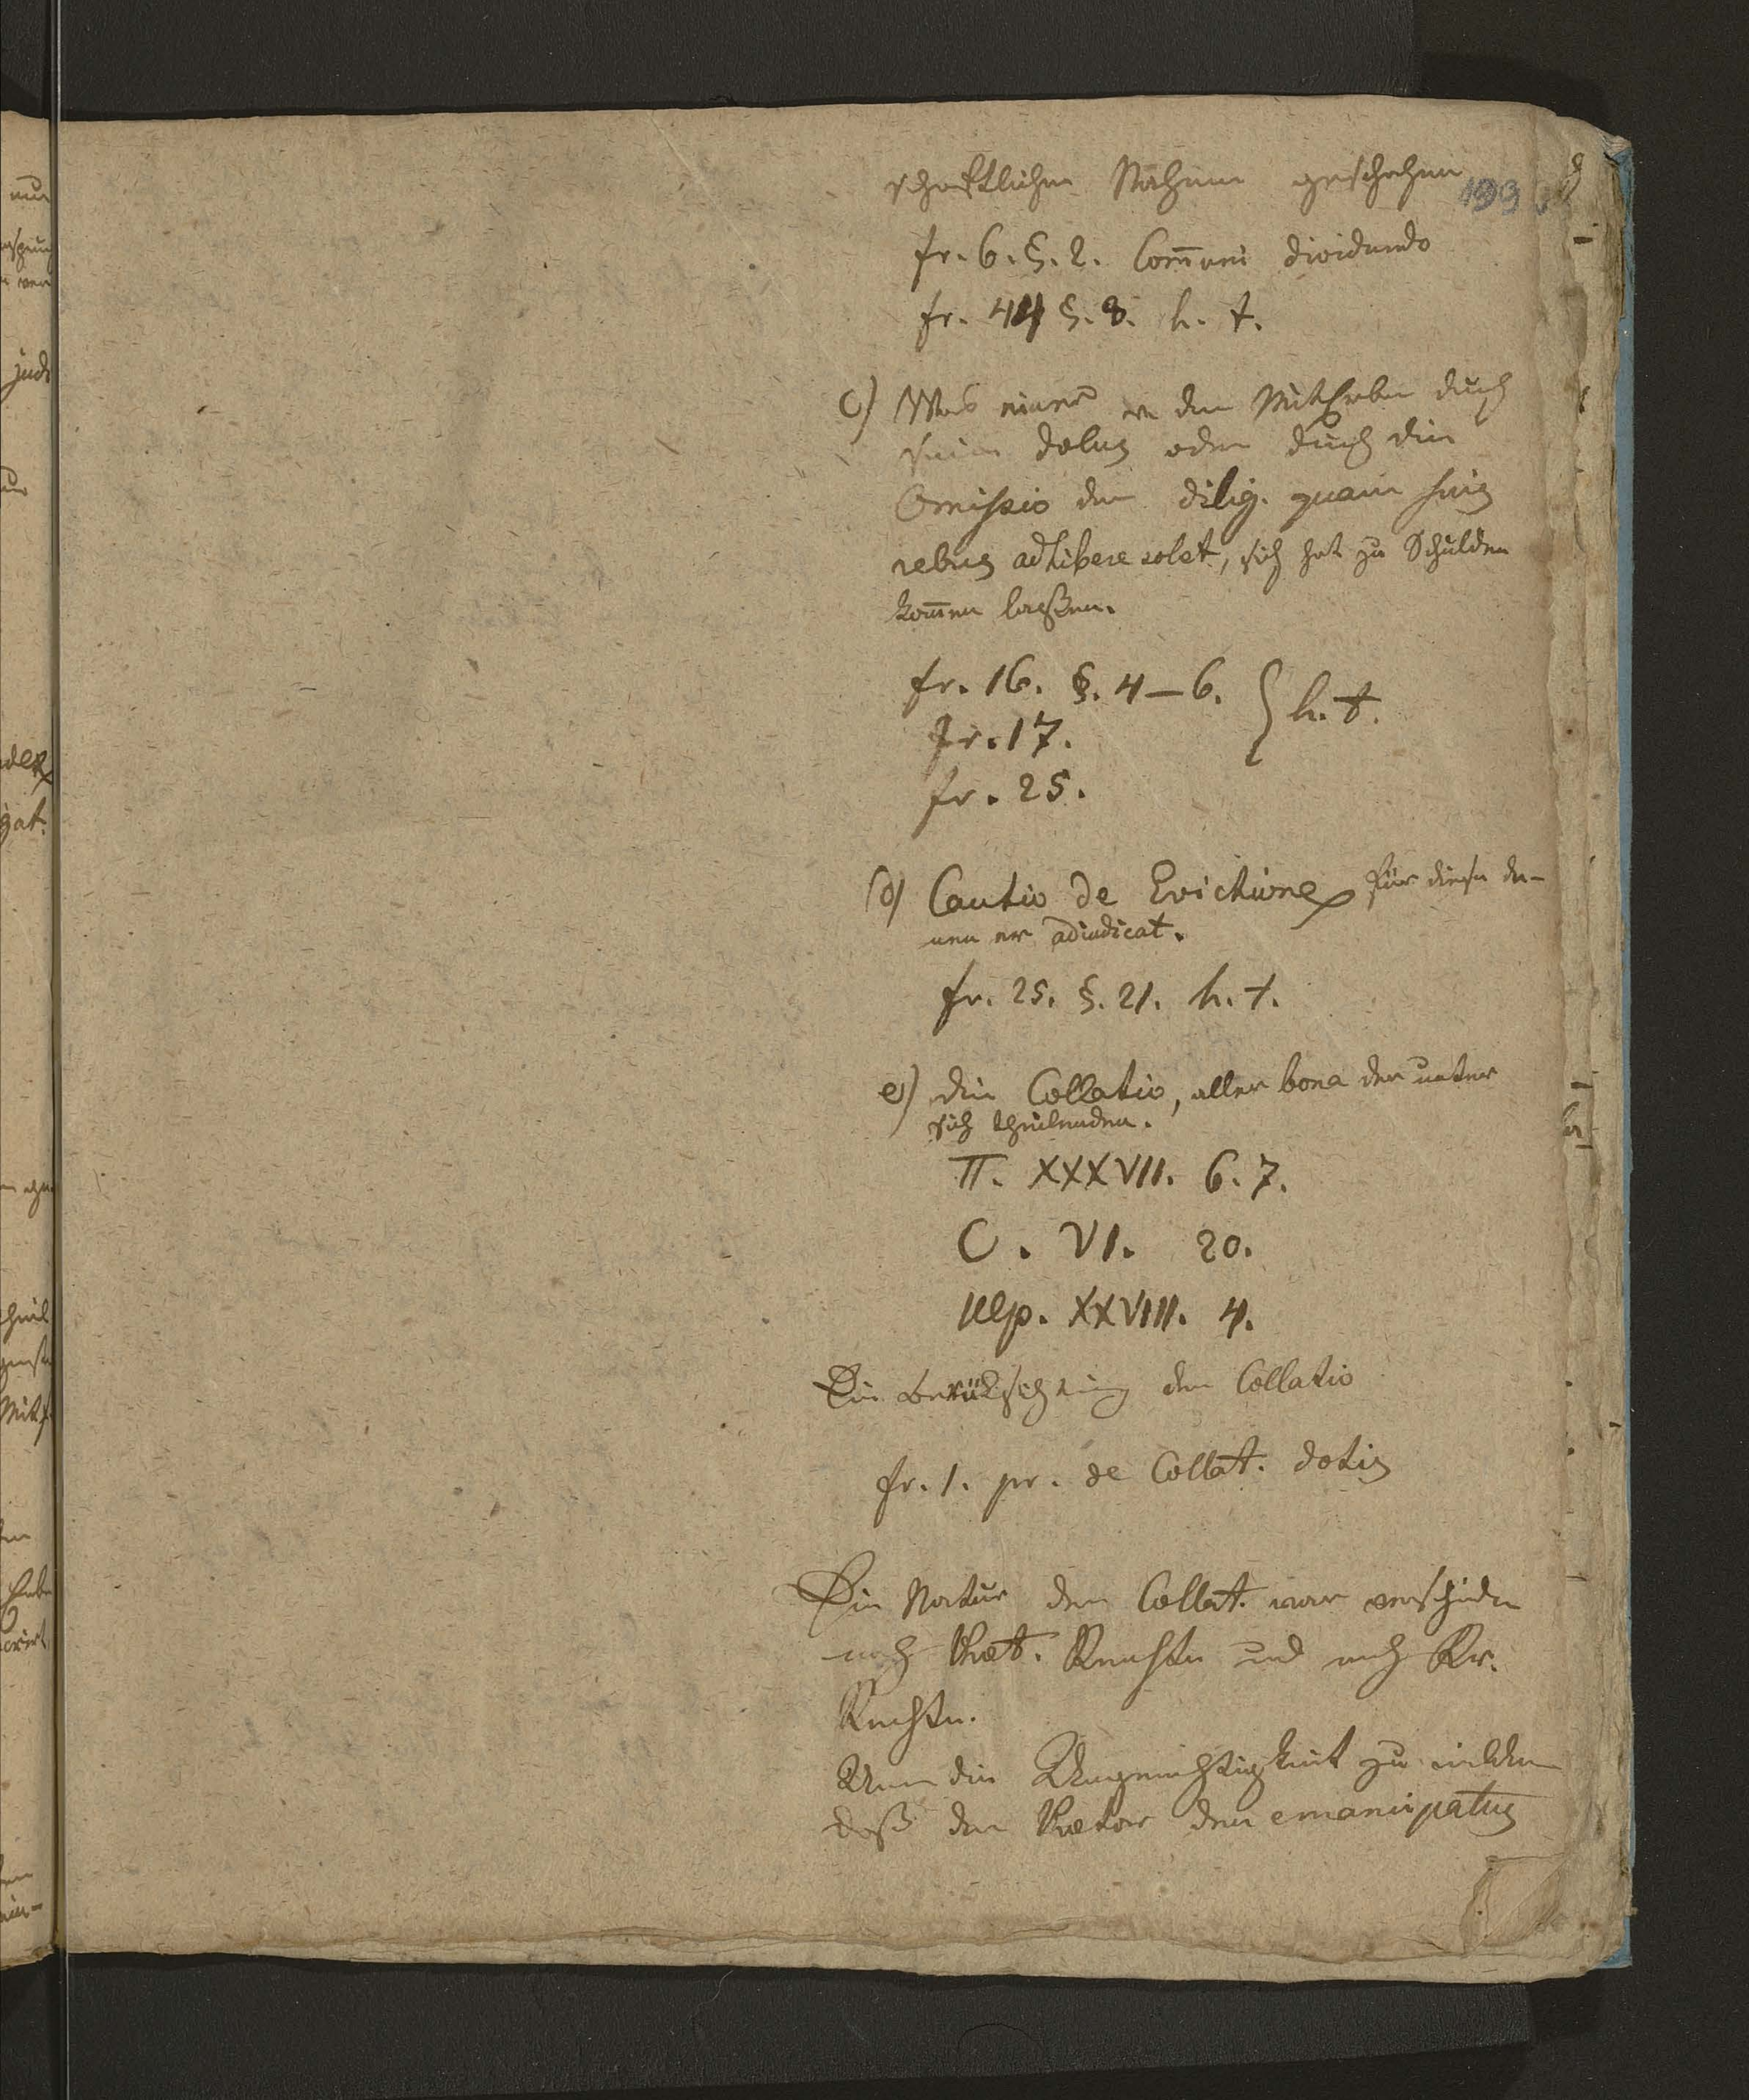 schaftlichen Nahmen geschehen
193
fr. 6. §. 2. Com̄uni dividundo
fr. 44 §. 8. h. t.
c) Was einer v den Miterben durch
seinen dolus oder durch die
Omissio der dilig. quam suis
rebus adhibere solet, sich hat zu Schulden
kom̄en laßen.
fr. 16. §. 4–6.
fr. 17. } h. t.
fr. 25.
d) Cautio de Evictione für diese de-
nen er adiudicat.
fr. 25. §. 21. h. t.
e) die Collatio, aller bona der unter
sich theilenden.
Π. XXXVII. 6. 7.
C. VI. 20.
Ulp. XXVIII. 4.
Die Berüksichtung der Collatio
fr. 1. pr. de Collat. dotis
Die Natur der Collat. war verschieden
nach Præt. Rechte und nach Kr.
Rechte.
Um die Ungerechtigkeit zu mildern
daß der Prætor den emancipatus